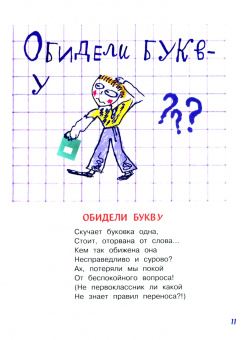 ОБИДЕЛИ БУКВ-
У
???
ОБИДЕЛИ БУКВУ
Скучает буковка одна,
Стоит, оторвана от слова...
Кем так обижена она
Несправедливо и сурово?
Ах, потеряли мы покой
От беспокойного вопроса!
(Не первоклассник ли какой
Не знает правил переноса?!)
11